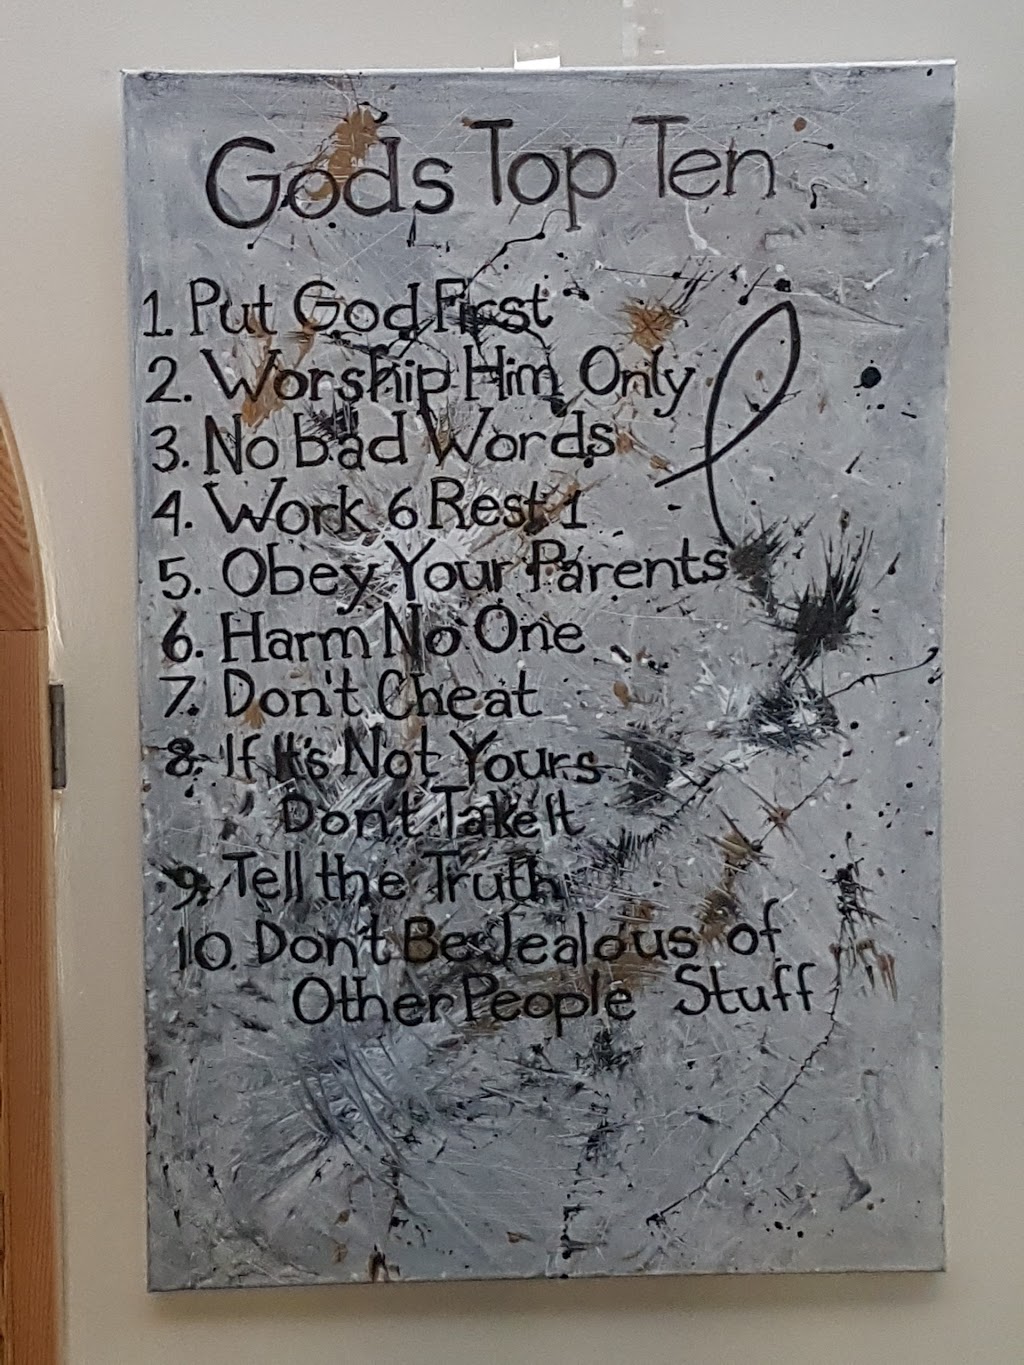 Gods Top Ten
1. Put God First
2. Worship Him Only
3. No bad Words
4. Work 6 Rest 1
5. Obey Your Parents
6. Harm No One
7. Don't Cheat
8. If It's Not Yours
Don't Take It
9. Tell the Truth
10. Don't Be Jealous of
Other People Stuff